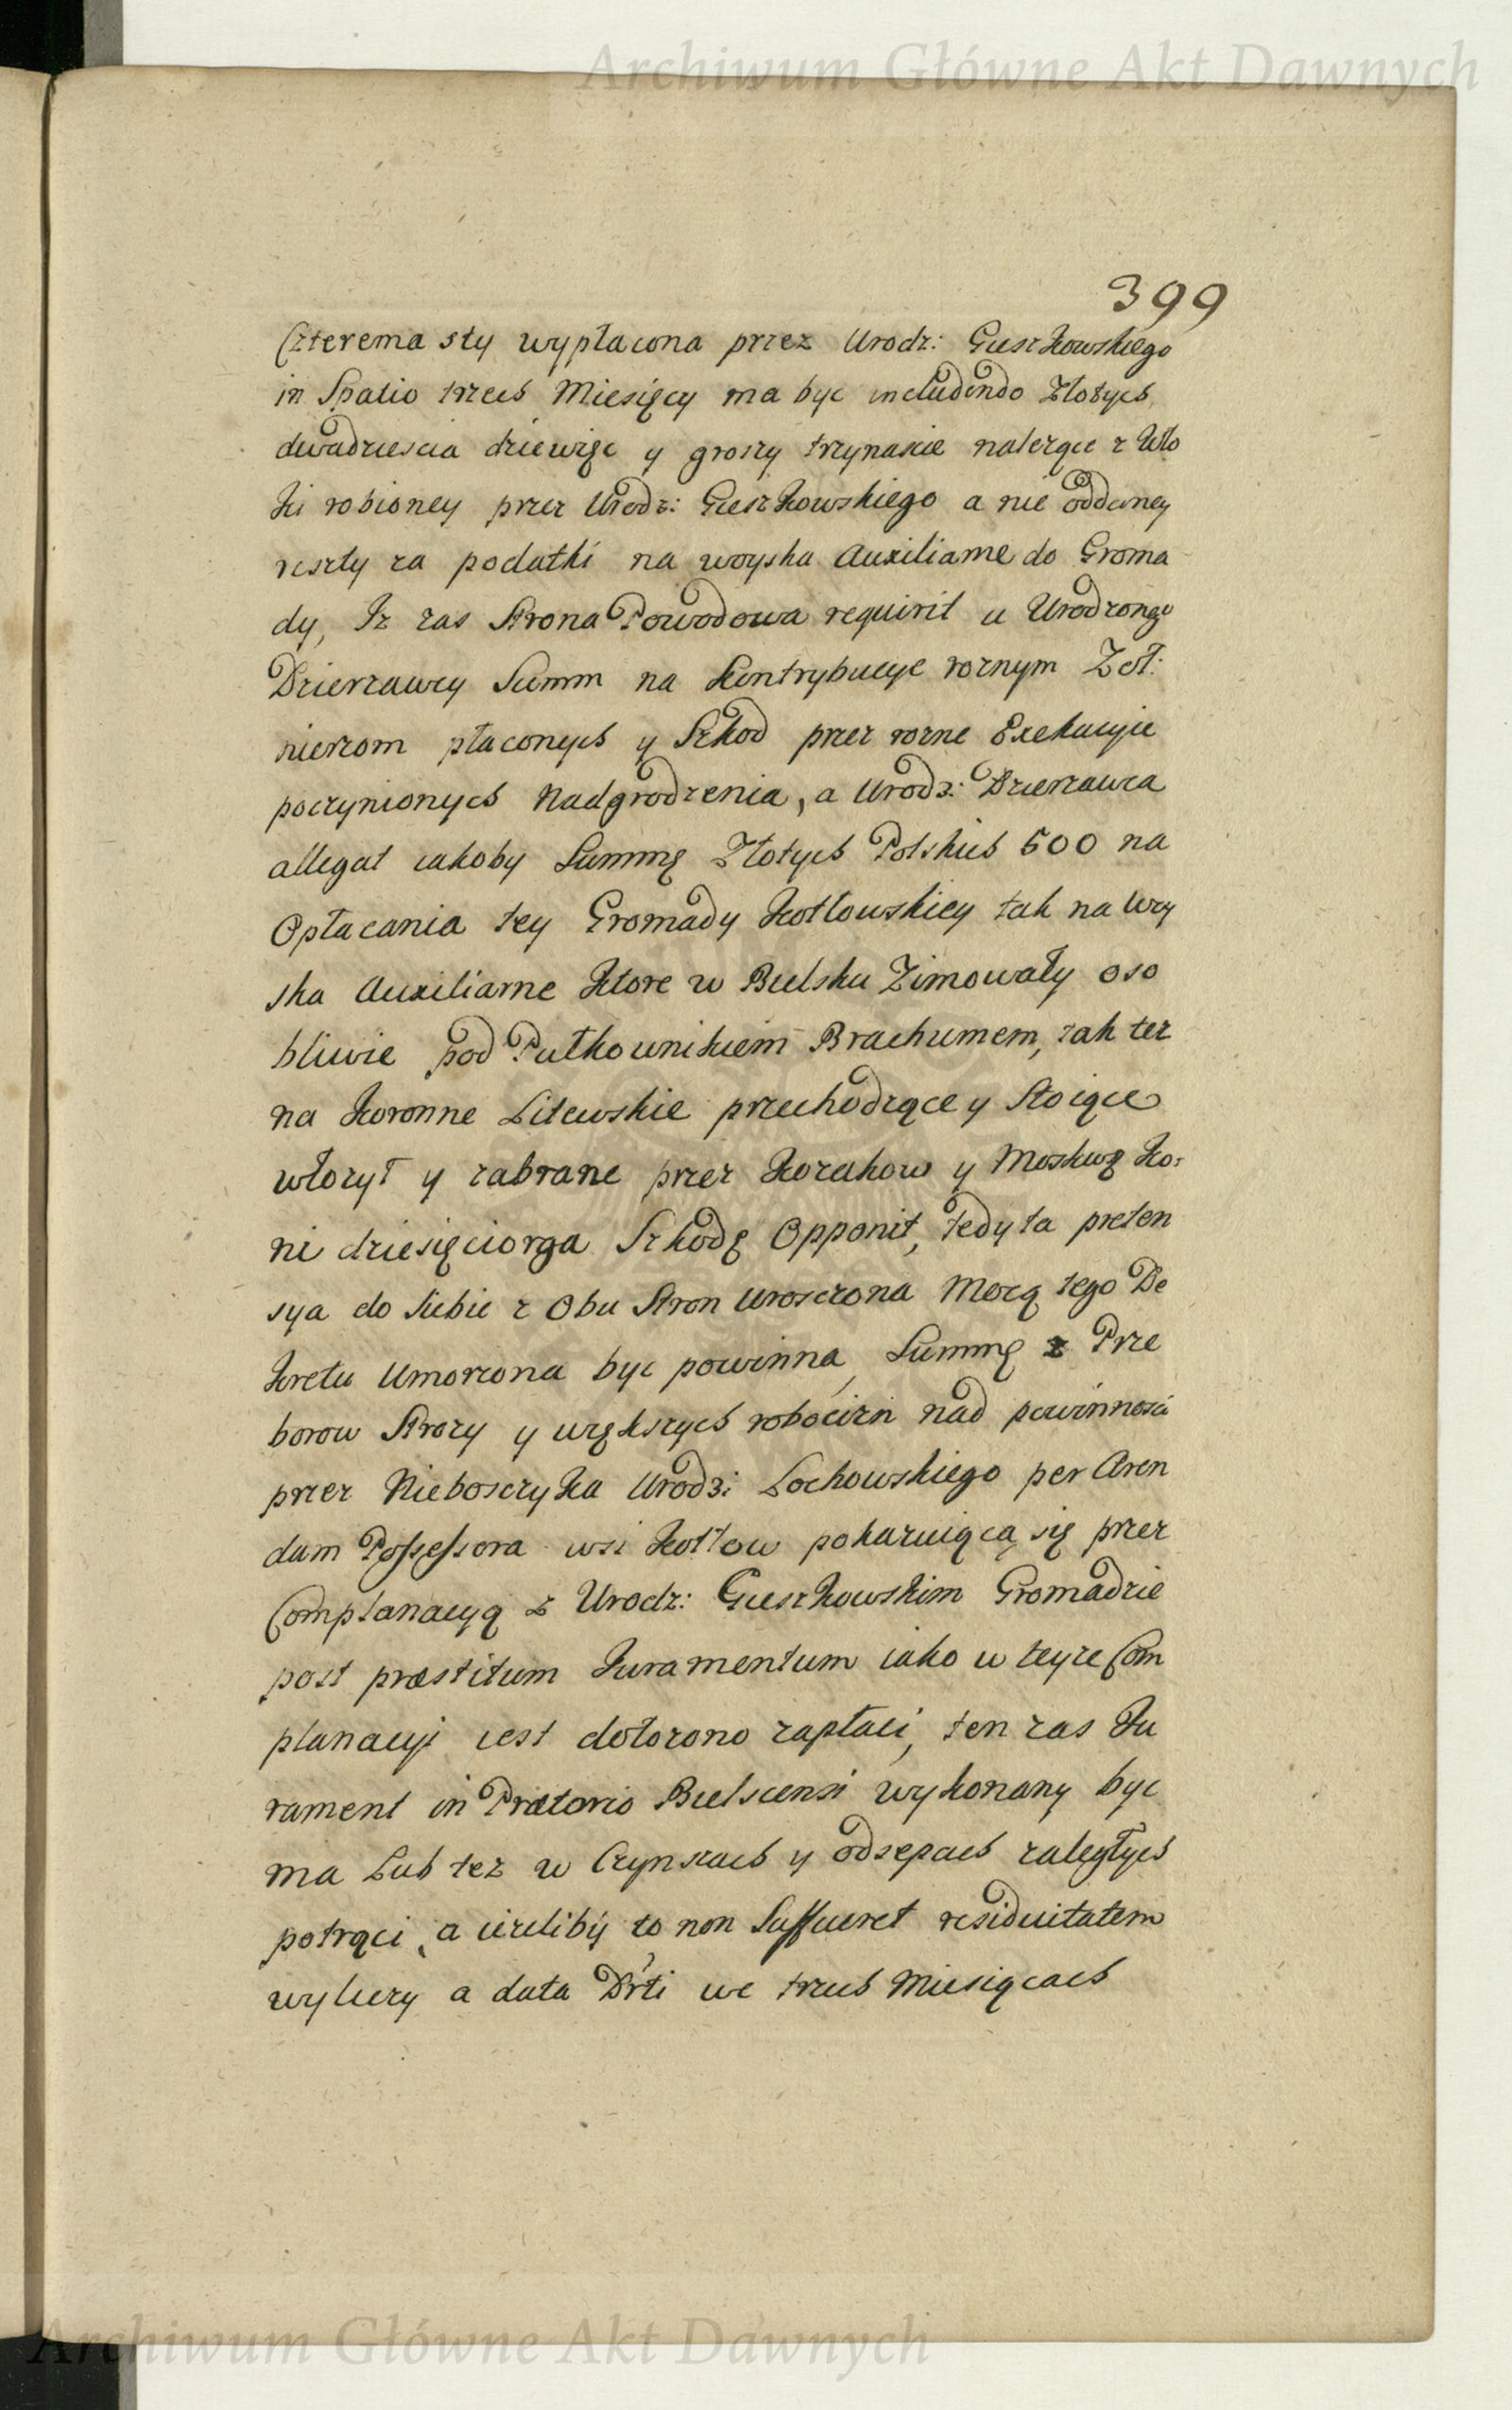 Archiwum Główne Akt Dawnych
399
Czterema sty wypłacona przez Urodz: Gieszkowskiego
in Spatio trzech Miesięcy ma byc includendo Złotych
dwadziescia dziewięc y groszy trzynascie należące z Wło
ki robioney przez Urodz: Gieszkowskiego a nie oddaney
reszty za podatki na woyska Auxiliarne do Groma
dy, Iz zas Strona Powodowa requirit u Urodzonego
Dzierzawcy Summ na Kontrybucye roznym Zoł:
nierzom płaconych y Szkod przez rozne Exekucyie
poczynionych Nadgrodzenia, a Urodz: Dzierzawca
allegat iakoby Summę Złotych Polskich 500 na
Opłacania tey Gromady Kotłowskiey tak na Woy
ska Auxiliarne Ktore w Bielsku Zimowały oso
bliwie pod Pułkownikiem Brachumem, tak tez
na Koronne Litewskie przechodzące y Stoiące
włozył y zabrane przez Kozakow y Moskwę Ko:
ni dziesięciorga Szkodę Opponit, tedy ta preten
sya do Siebie z Obu Stron Uroszczona Mocą tego De
kretu Umorzona byc powinna, Summę z Prze
borow Strozy y większych robocizn nad powinnosci
przez Nieboszczyka Urodz: Lochowskiego per Aren
dam Possessora wsi Kotłow pokazuiącą się przez
Complanacyą z Urodz: Gieszkowskim Gromadzie
post præstitum Juramentum iako w teyze Com
planacyi iest dołozono zapłaci, ten zas Ju
rament in Prætorio Bielscensi wykonany byc
ma Lub tez w Czynszach y odsepach zaległych
potrąci, a iezeliby to non Suffueret residuitatem
wyliczy a data Dr̃ti we trzech Miesiącach
Archiwum Główne Akt Dawnych